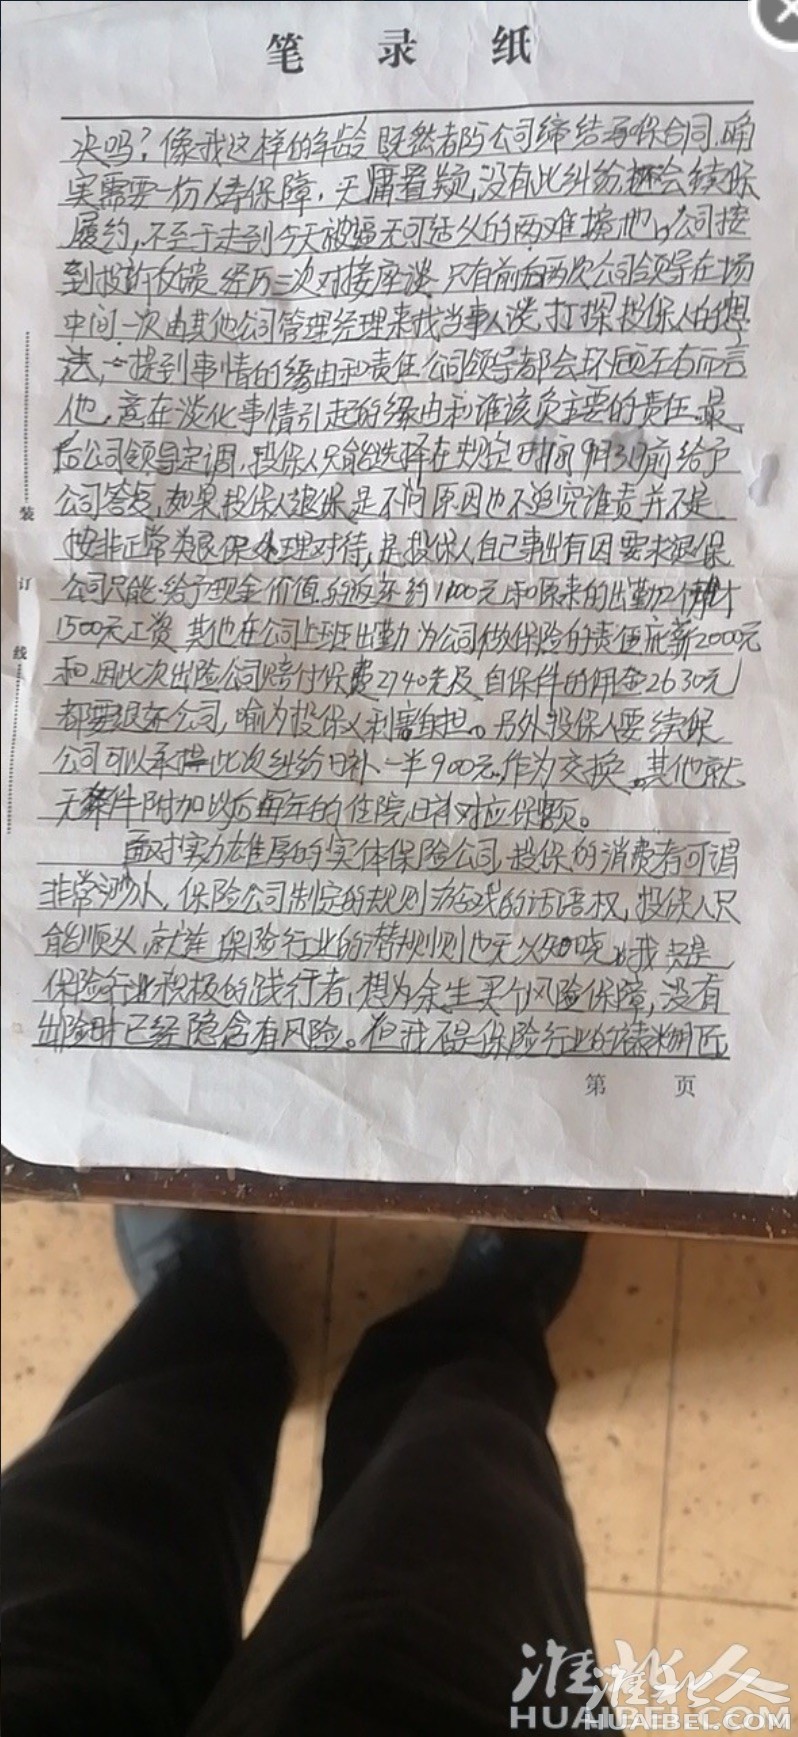 笔录纸
决吗?像我这样的年龄既然都与公司缔结承保合同,确
实需要一份人寿保障,无庸置疑,没有此纠纷还会续保
履约,不至于走到今天被逼无可适从的两难境地。公司接
到投诉反馈 经历三次对接座谈 只有前后两次公司领导在场
中间一次由其他公司管理经理来找当事人谈,打探投保人的想
法,一提到事情的缘由和责任公司领导都会环顾左右而言
他,意在淡化事情引起的缘由和谁该负主要的责任。最
后公司领导定调,投保人只能选择在规定时间9月3日前给予
公司答复,如果投保人退保是不问原因也不追究谁责并不是
按非正常类退保处理对待,是投保人自己事出有因要求退保
公司只能给予现金价值的返还约1100元和原来的出勤2个月
1500元工资 其他在公司上班出勤为公司做保险的责任底薪2000元
和因此次出险公司赔付保费2740元及自保件的佣金2630元
都要退还公司,喻为投保人利害自担。另外投保人要续保
公司可以承担此次纠纷日补一半900元作为交换。其他就
无条件附加以后每年的住院日补对应保额。
面对实力雄厚的实体保险公司,投保的消费者可谓
非常渺小,保险公司制定的规则游戏的话语权,投保人只
能顺从,就连保险行业的潜规则也无从知晓。我只是
保险行业积极的践行者,想为余生买个风险保障,没有
出险时已经隐含有风险。但我不是保险行业的裱糊匠
第 页
装
订
线
淮北人
HUAIBEI.COM
淮北人
HUAIBEI.COM